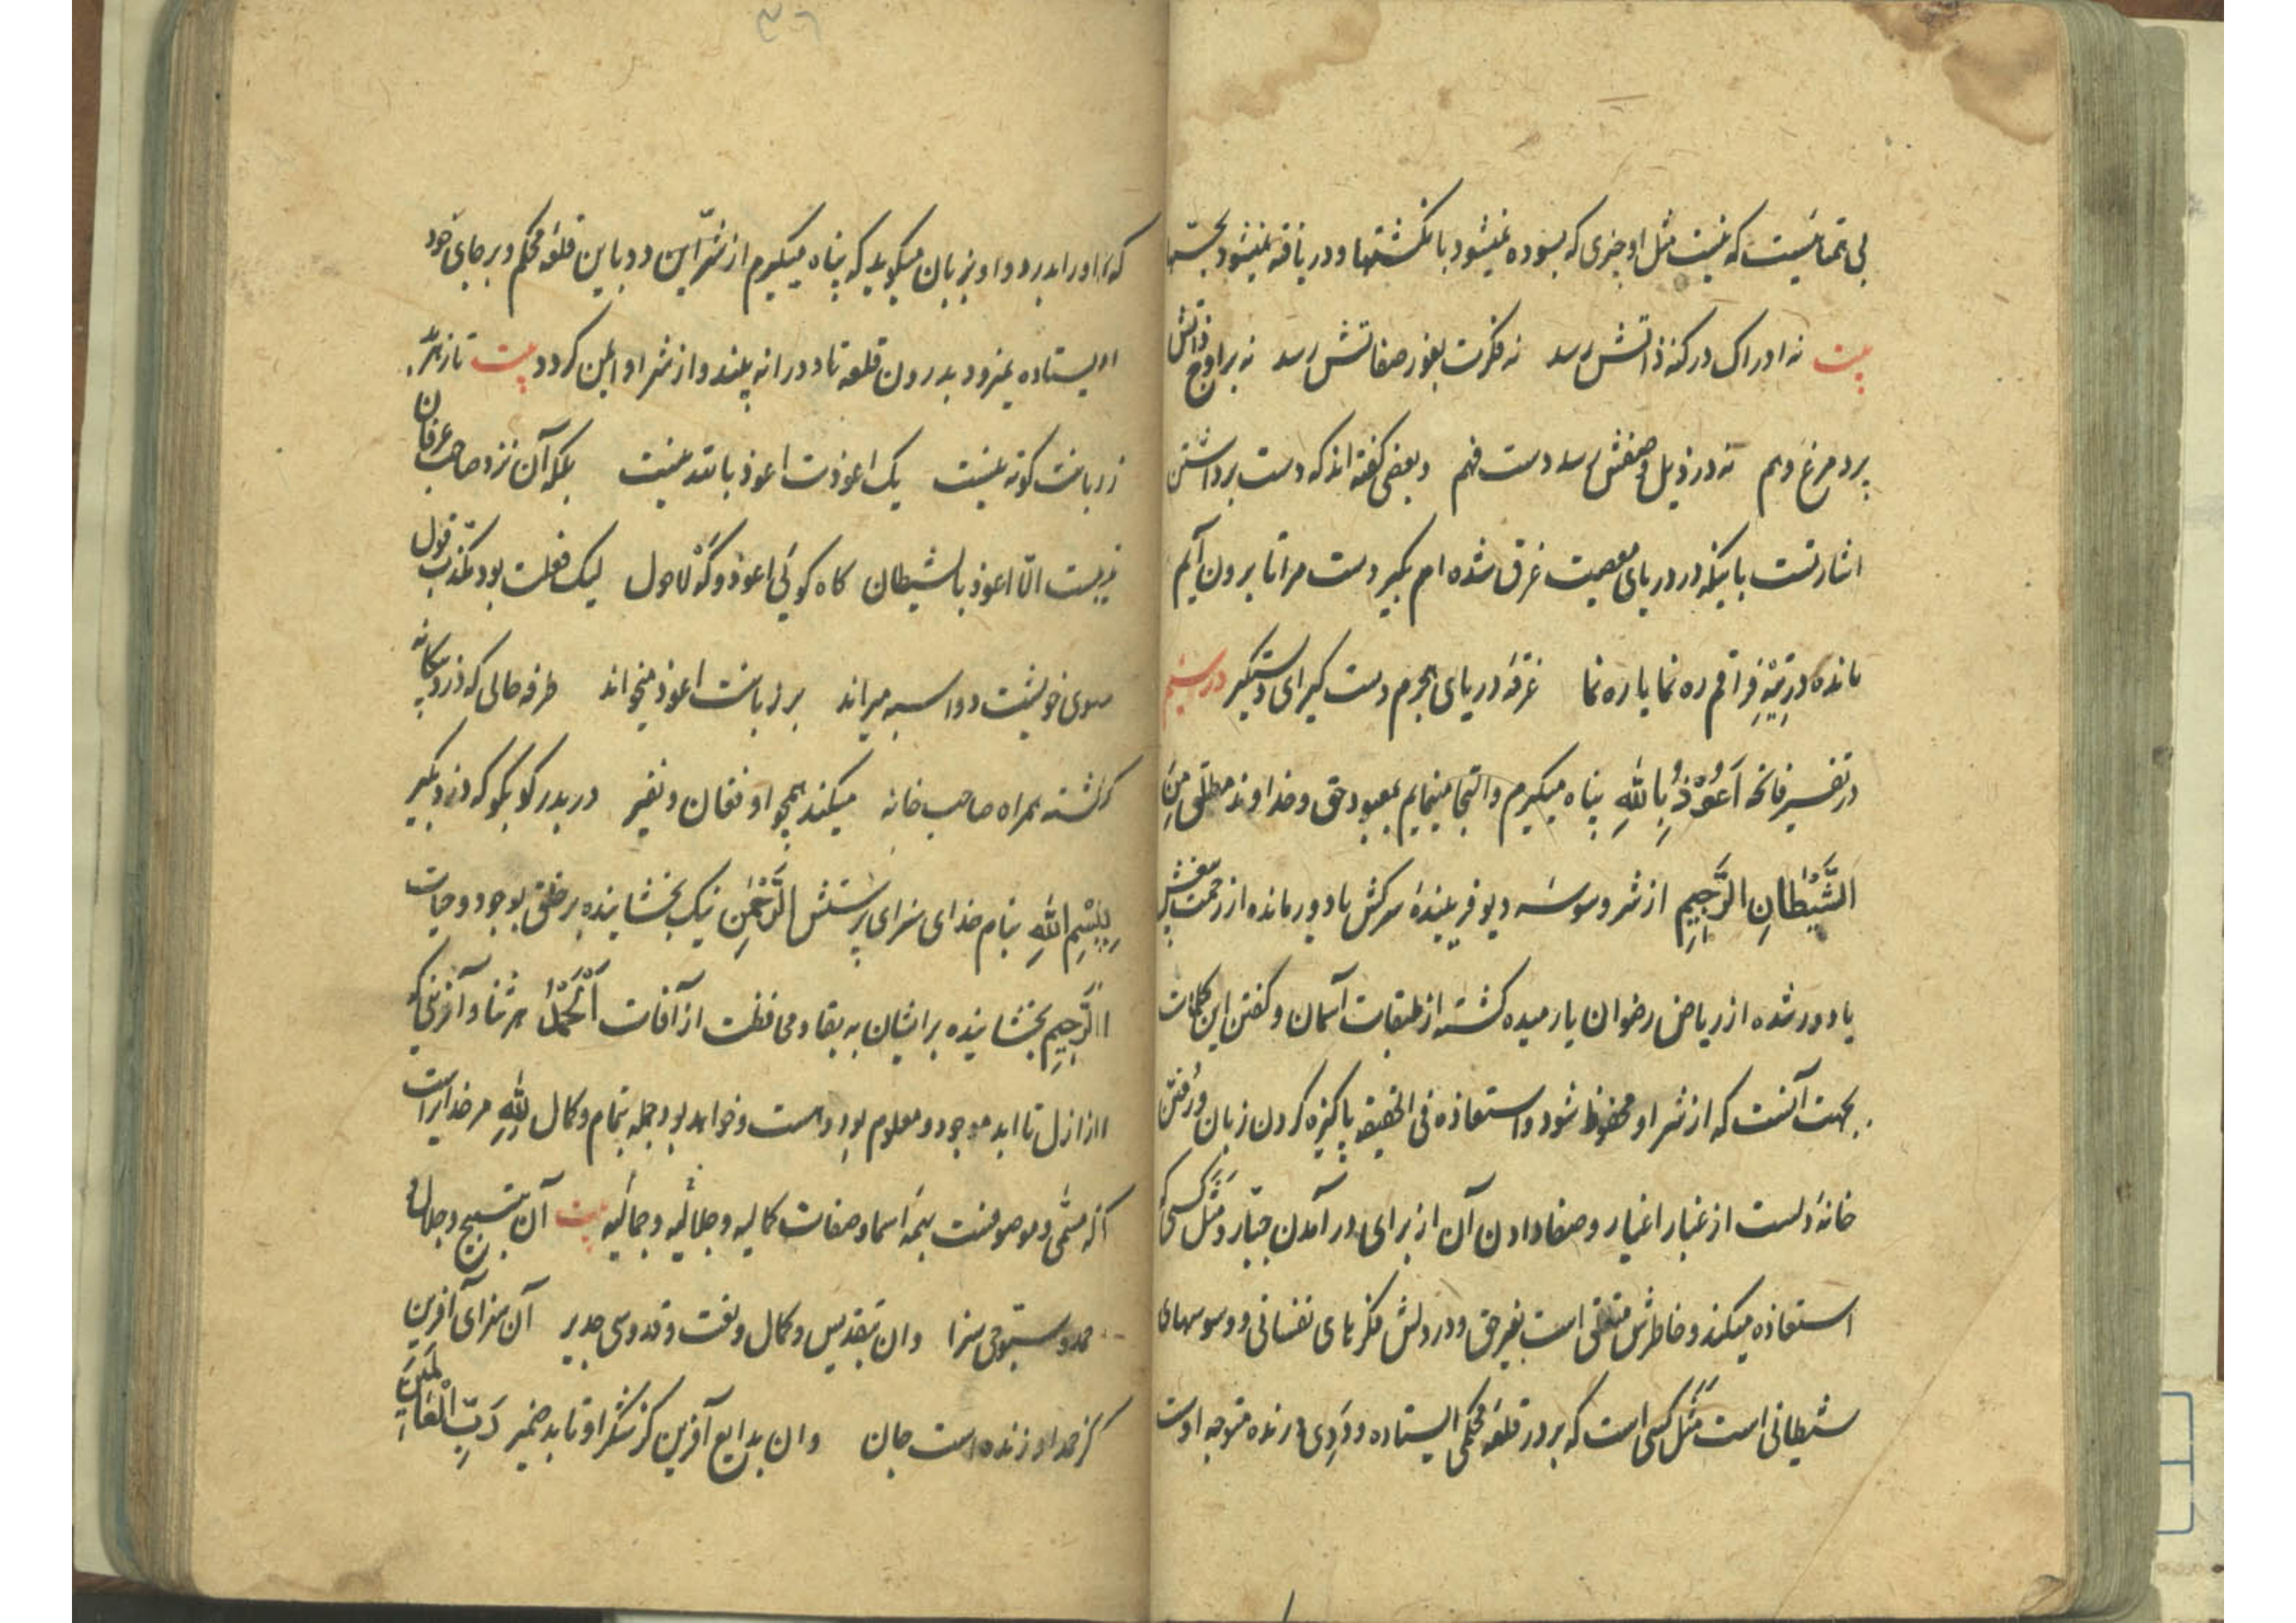 بی همتائیست که نیست مثل او چیزی که بسوده نمیشود بانگشتها و دریافته نمیشود بحسّها
بیت نه ادراک در کنه ذاتش رسد نه فکرت بغور صفاتش رسد نه بر اوج ذاتش
پرد مرغ وهم نه در ذیل وصفش رسد دست فهم و بعضی گفته اند که دست برداشتن
اشارتست باینکه در دریای معصیت غرق شده ام بگیر دست مرا تا برون آیم
مانده در تیه فراقم ره نما یا ره نما غرقه دریای جرم دست گیر ای دستگیر
در تفسیر فاتحه اَعُوْذُ بِاللهِ پناه میگیرم و التجا مینمایم بمعبود حق و خداوند مطلق مِنَ
الشَّیْطَانِ الرَّجِیْمِ از شر وسوسه دیو فریبندهٔ سرکش یا دور مانده از رحمت
یا دور شده از ریاض رضوان یا رمیده گشته از طبقات آسمان و گفتن این کلمات
بجهت آنست که از شر او محفوظ شود و استعاذه فی الحقیقه پاکیزه کردن زبان و رُفتن
خانهٔ دلست از غبار اغیار و صفا دادن آن از برای در آمدن جبّار و مَثَل کسی که
استعاذه میکند و خاطرش متعلق است بغیر حق و در دلش فکرهای نفسانی و وسوسهای
شیطانی است مَثَل کسی است که بر در قلعهٔ محکمی ایستاده و دَدِی درنده متوجه اوست
۳۶
که او را بدرد و او بزبان میگوید که پناه میگیرم از شرّ این دد باین قلعه محکم و بر جای خود
ایستاده نمیرود بدرون قلعه تا دد او را نه بیند و از شر او ایمن گردد بیت تا ز هر بد
زبانت کوته نیست یک اعوذت اعوذ بالله نیست بلکه آن نزد صاحب عرفان
نیست الّا اعوذ بالشیطان گاه گوئی اعوذ و گَهْ لاحول لیک فعلت بود مکذب قول
سوی خویشت دو اسبه میراند بر زبانت اعوذ میخواند طرفه حالی که دزد بیگانه
گشته همراه صاحب خانه میکند همچو او فغان و نفیر در بدر کو بکو که دزد بگیر
بِسْمِ اللهِ بنام خدای سزای پرستش الرَّحْمٰنِ نیک بخشاینده بر خلق بوجود و حیات
الرَّحِیْمِ بخشاینده بر ایشان به بقا و محافظت از آفات اَلْحَمْدُ هر ثنا و آفرینی که
از ازل تا ابد موجود و معلوم بود و هست و خواهد بود جمله بتمام و کمال لِلّٰهِ مر خدایراست
آنکه مسمّی و موصوفست بهمه اسما و صفات کمالیه و جلالیّه و جمالیّه بیت آن بتسبیح و جلال و
حمد و سبّوحی سزا وان بتقدیس و کمال و نعت و قدوسی جدیر آن سزای آفرین
کز حمد او زنده است جان وان بدایع آفرین کز شکر او تابد ضمیر رَبِّ الْعَالَمِیْنَ